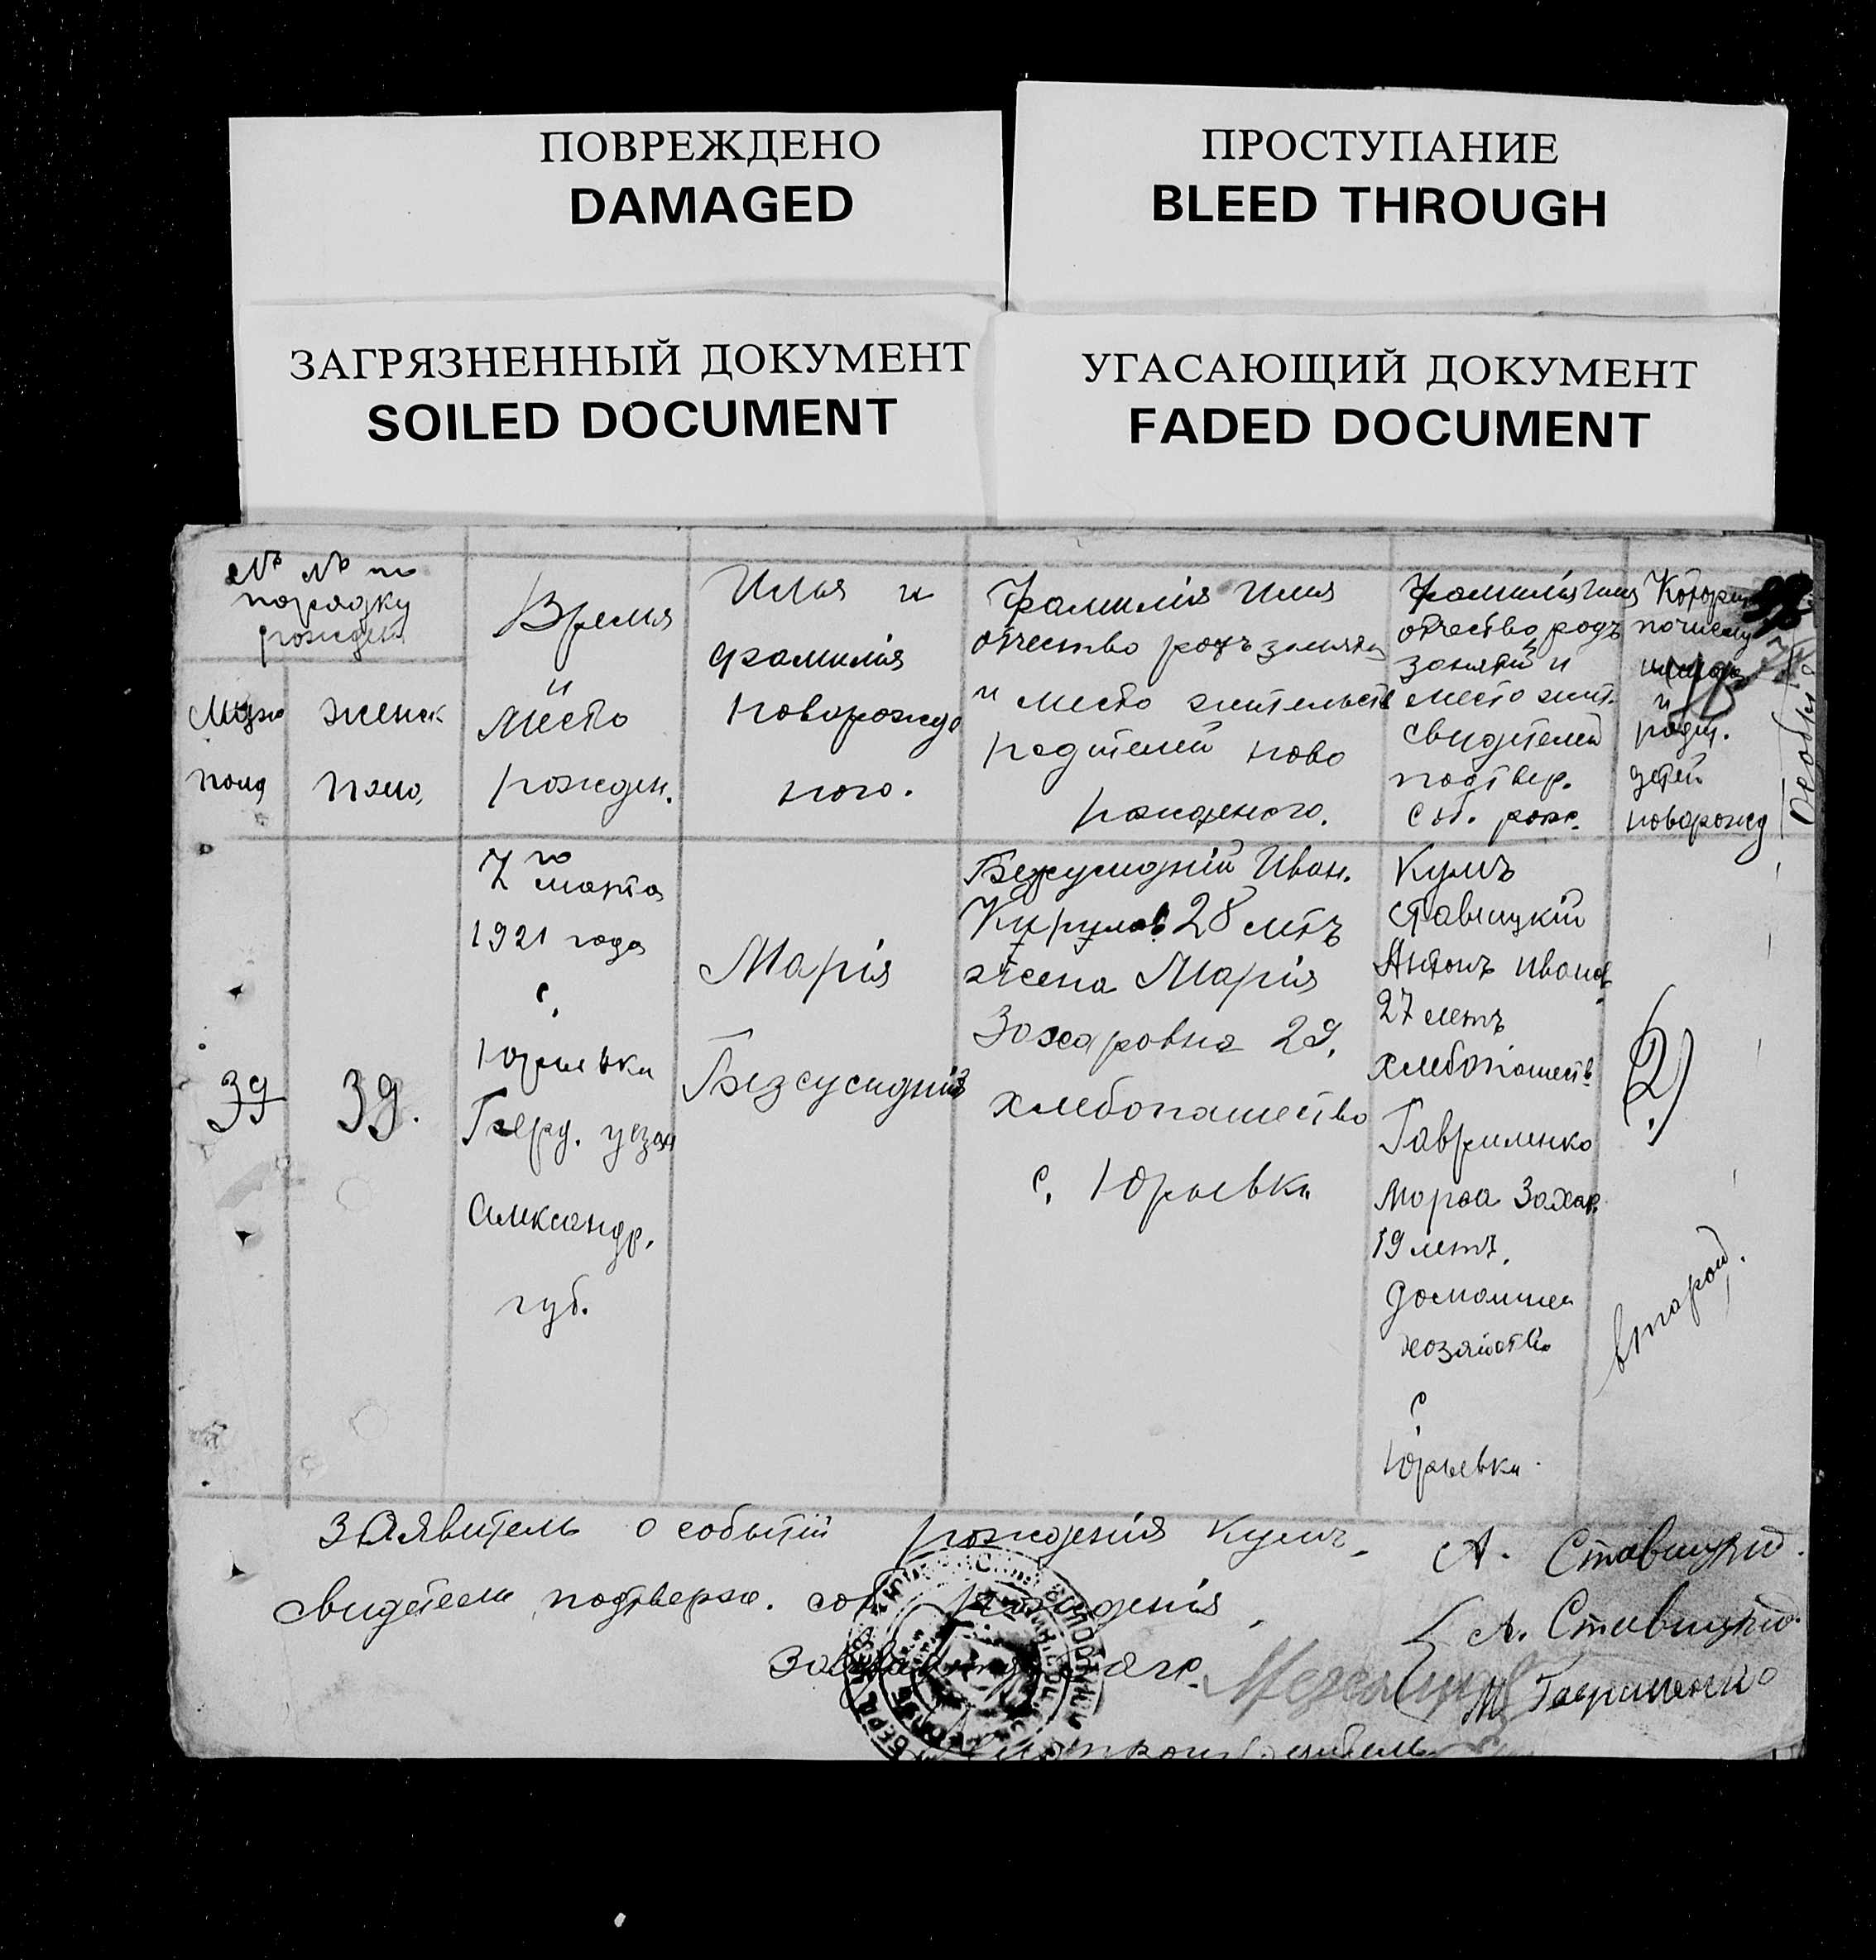 ПОВРЕЖДЕНО
DAMAGED
ПРОСТУПАНИЕ
BLEED THROUGH
ЗАГРЯЗНЕННЫЙ ДОКУМЕНТ
SOILED DOCUMENT
УГАСАЮЩИЙ ДОКУМЕНТ
FADED DOCUMENT
№ № по
порядку
рожден
Мужс
пола
женск
пола
Время
и
Место
рожден.
Имя и
фамилія
новорожде
ного.
Фамилія Имя
отчество родъ занятія
и место жительств
родителей ново
рожденого.
Фамилія Имя
отчество родъ
занятій и
место жит.
свидетелей
подтвер.
соб. рож.
Которы
почисму
и
родит.
детей
новорожд
39
39.
7го
марта
1921 года
с.
Юрьевка
Берд. уезда
Александр.
губ.
Марія
Безсусидній
Безсусидній Иван.
Кирилов 28 летъ
жена Марія
Захаровна 29.
хлебопашество
с. Юрьевка
Кумъ
Ставицкій
Антонъ Иванов
27 летъ
хлебопашеств
Гавриленко
Марфа Захар.
19 летъ.
домашнее
хозяйство
с
Юрьевка
(2)
второй.
Заявитель о событій рожденія Кумъ. А. Ставицкій.
Свидетели подтверж. соб. рожденія, А. Ставицкій.
М. Гавриленко